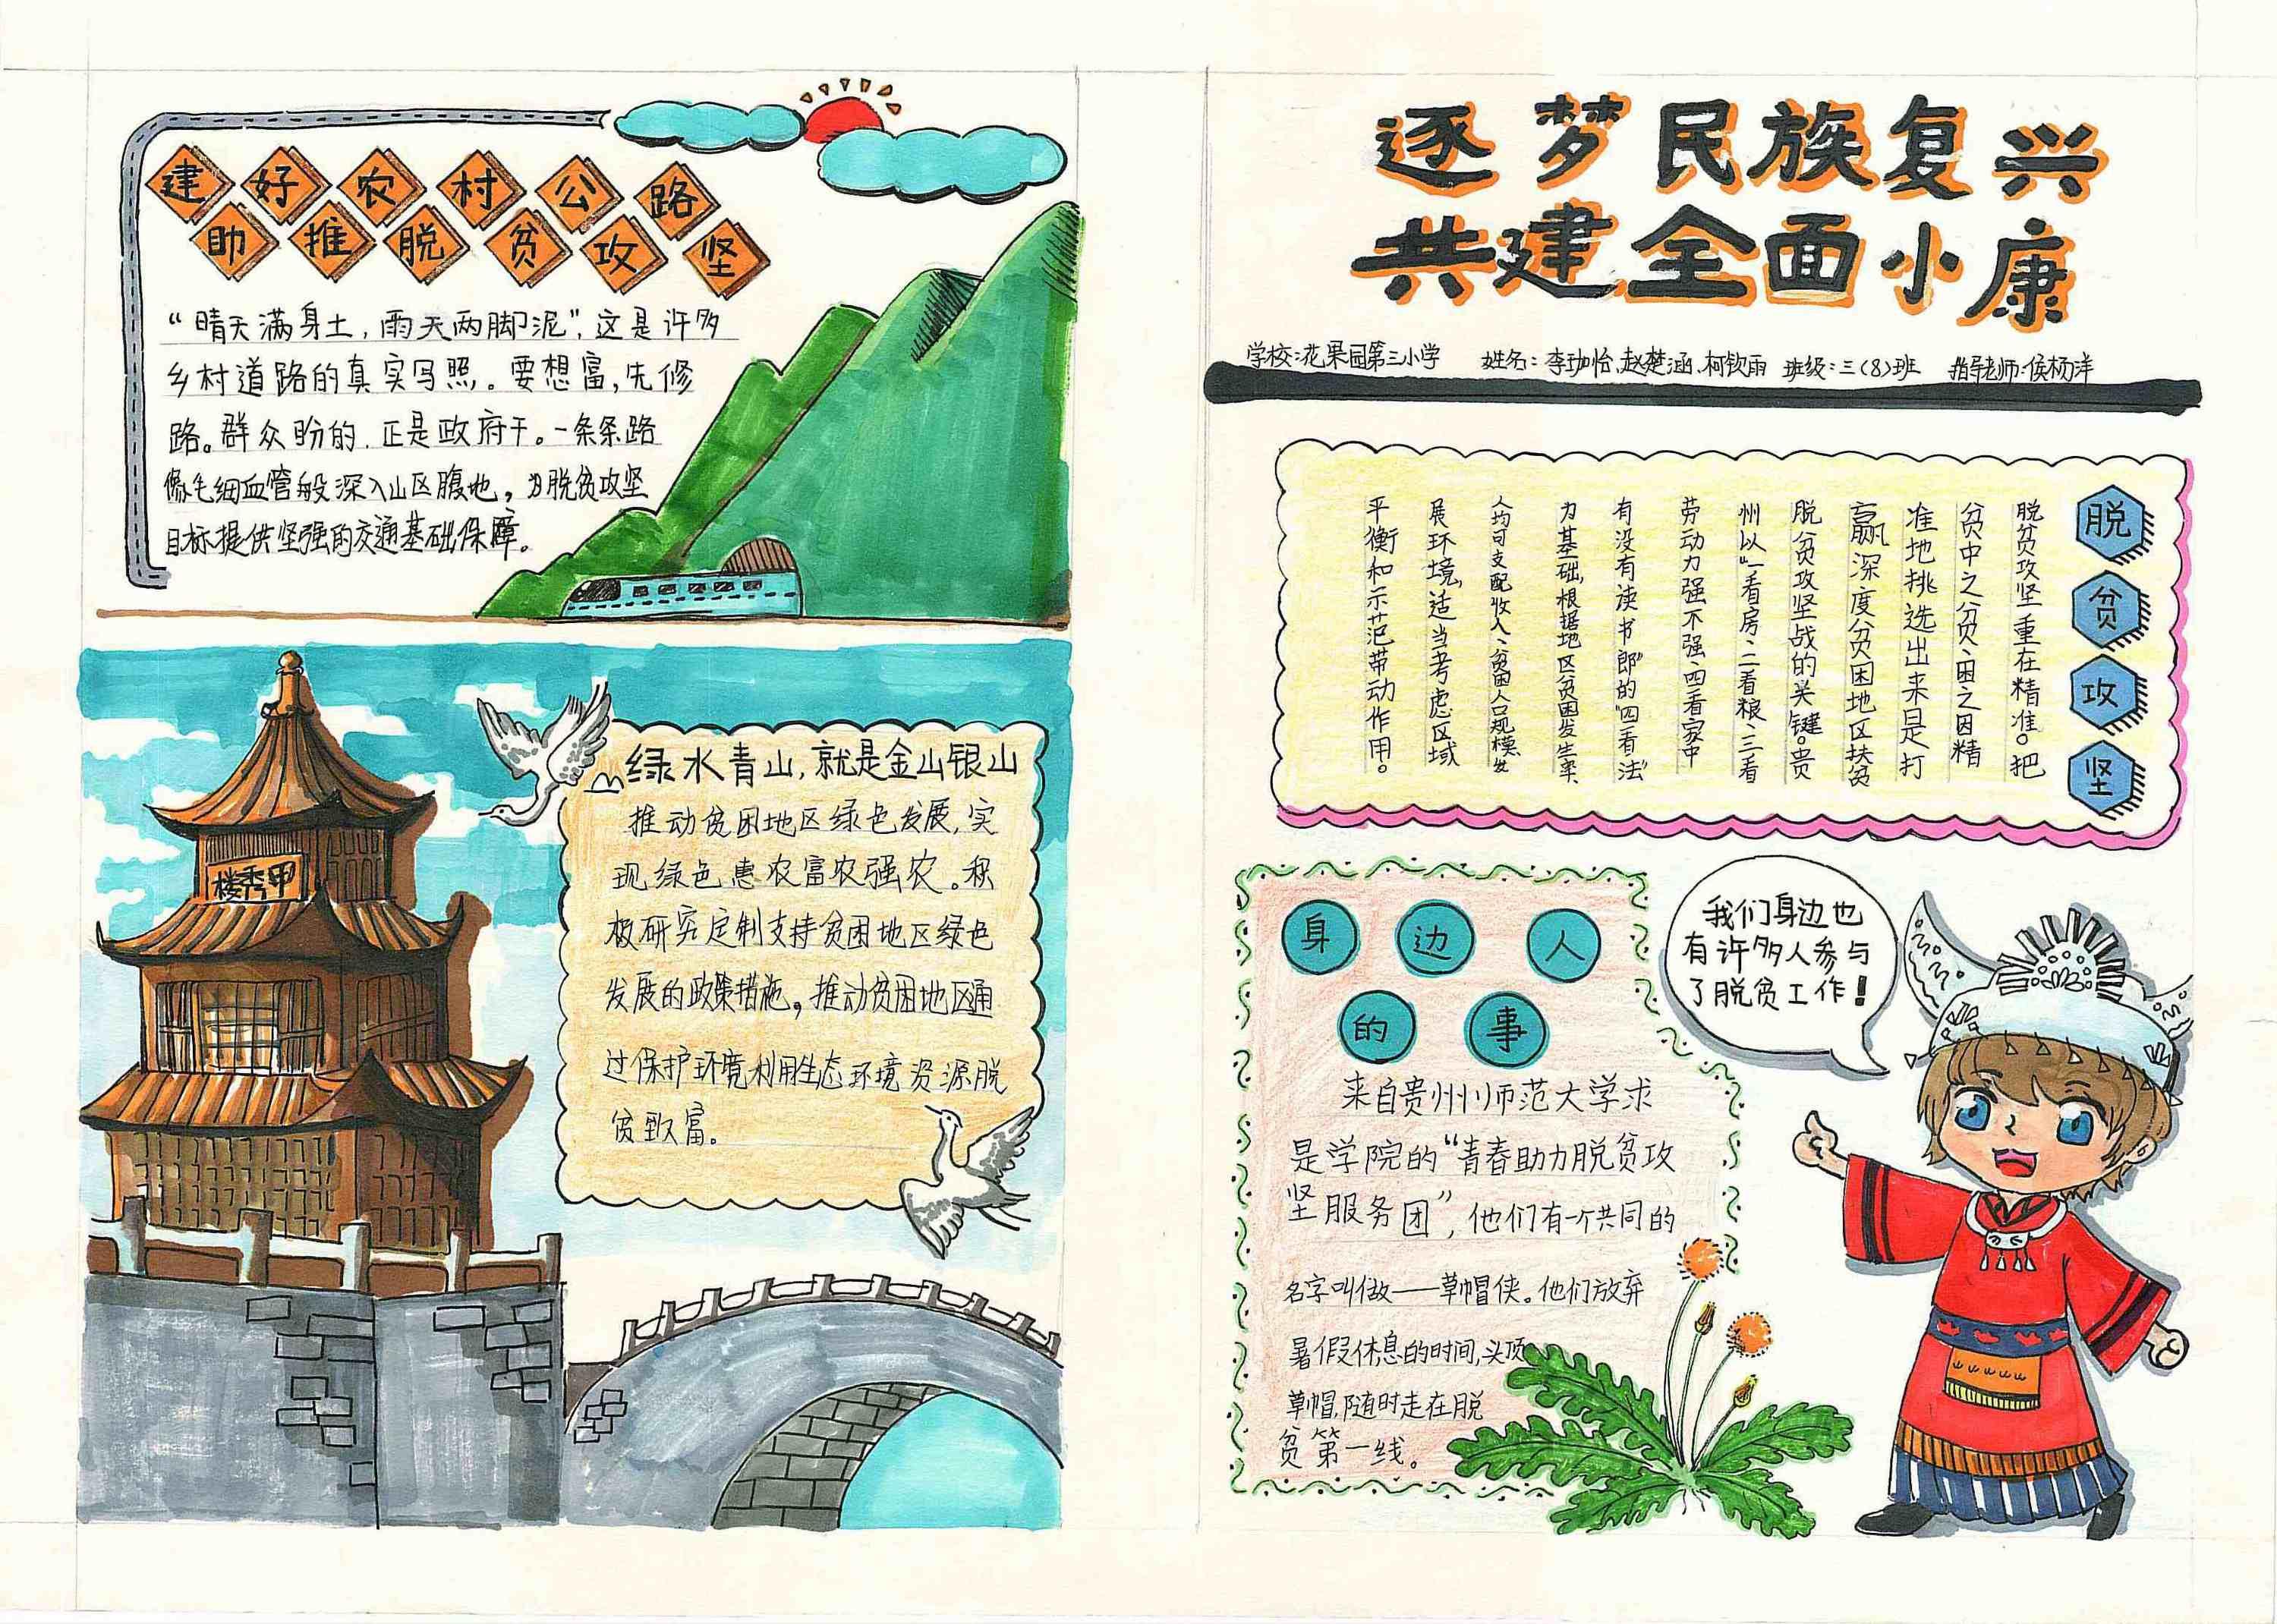 逐梦民族复兴
共建全面小康
学校:花果园第三小学 姓名:李珈怡,赵楚涵,柯钦雨 班级:三(8)班 指导老师:侯杨洋
脱贫攻坚
脱贫攻坚重在精准。把
贫中之贫、困之困精
准地挑选出来是打
赢深度贫困地区扶贫
脱贫攻坚战的关键。贵
州以“一看房、二看粮、三看
劳动力强不强、四看家中
有没有读书郎”的“四看法”
为基础,根据地区贫困发生率、
人均可支配收入、贫困人口规模、发
展环境,适当考虑区域
平衡和示范带动作用。
身边人
的事
来自贵州师范大学求
是学院的“青春助力脱贫攻
坚服务团”,他们有一个共同的
名字叫做——草帽侠。他们放弃
暑假休息的时间,头顶
草帽,随时走在脱
贫第一线。
我们身边也
有许多人参与
了脱贫工作!
建好农村公路
助推脱贫攻坚
“晴天满身土,雨天两脚泥”,这是许多
乡村道路的真实写照。要想富,先修
路。群众盼的,正是政府干。一条条路
像毛细血管般深入山区腹地,为脱贫攻坚
目标提供坚强的交通基础保障。
绿水青山,就是金山银山
推动贫困地区绿色发展,实
现绿色惠农富农强农。积
极研究定制支持贫困地区绿色
发展的政策措施。推动贫困地区通
过保护环境利用生态环境资源脱
贫致富。
楼秀甲